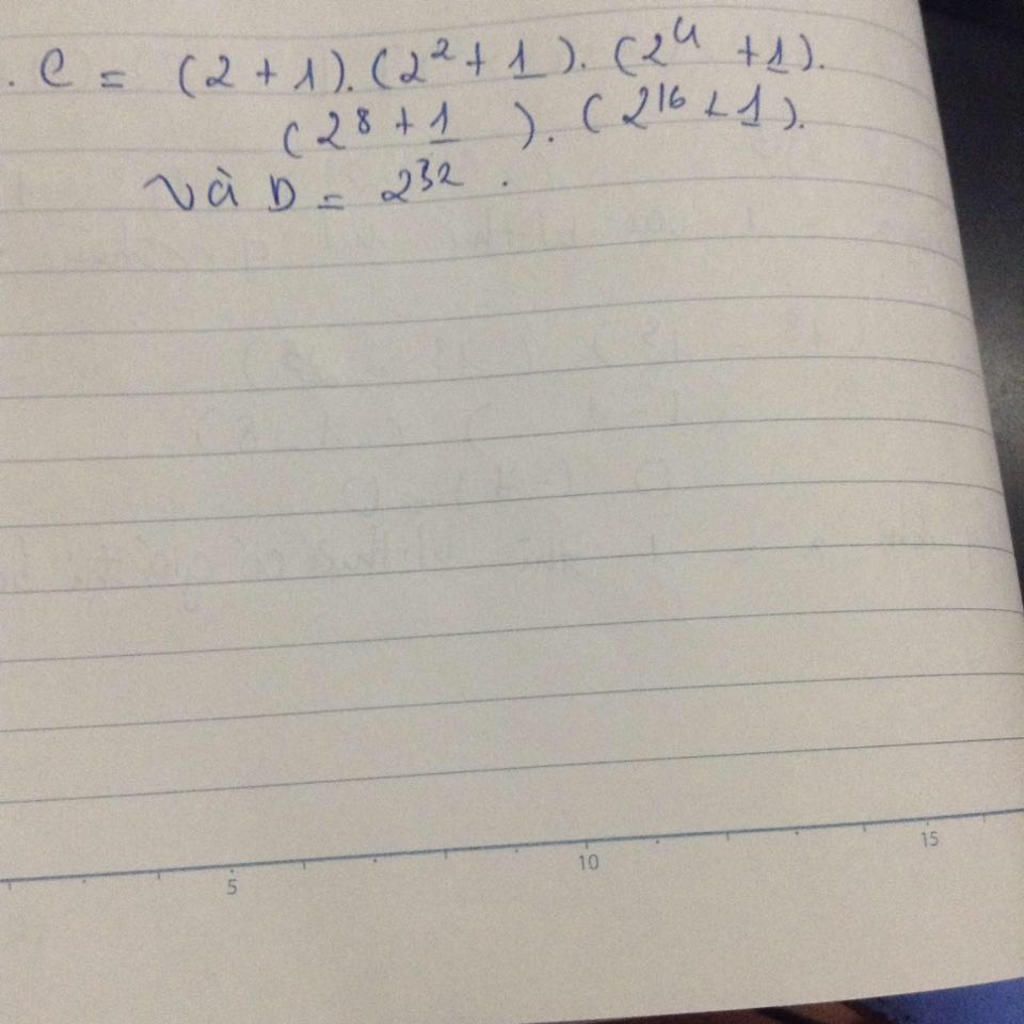 . C = (2 + 1). (2² + 1). (2⁴ + 1).
(2⁸ + 1 ). (2¹⁶ + 1).
và D = 2³² .
5 10 15